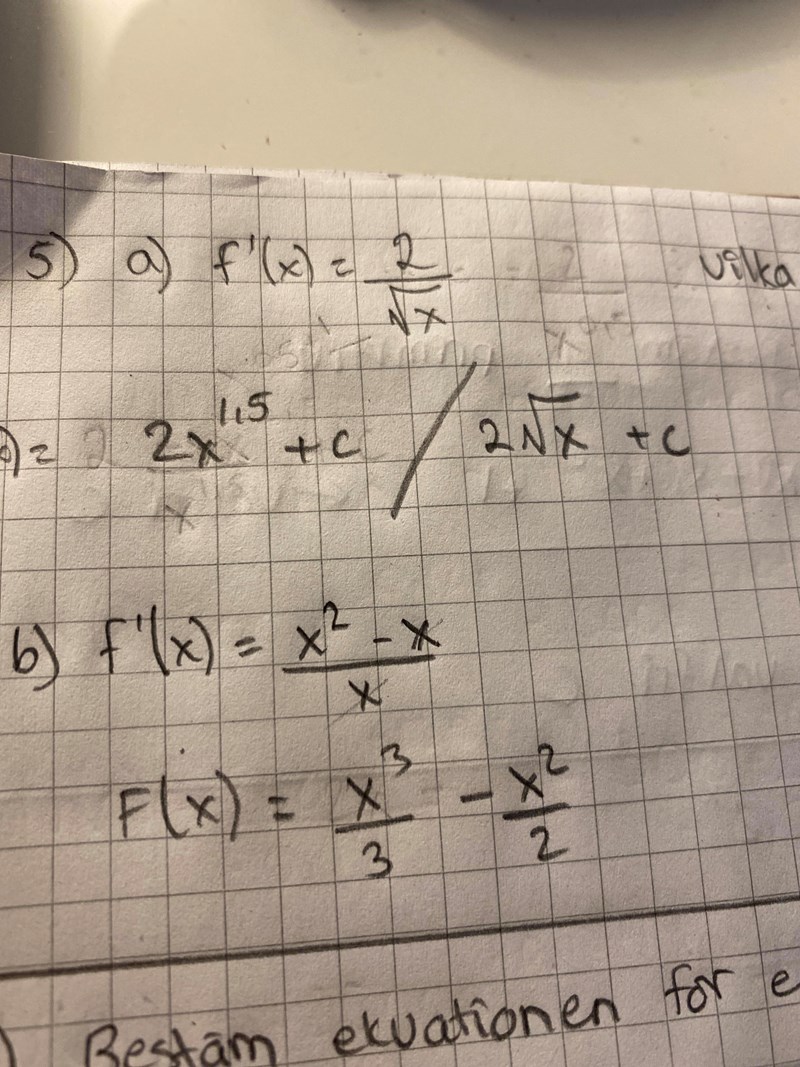 5) a) f'(x) = 2/√x vilka
)= 2x^1,5 + c / 2√x + c
b) f'(x) = (x² - x)/x
F(x) = x³/3 - x²/2
) Bestäm ekvationen for e